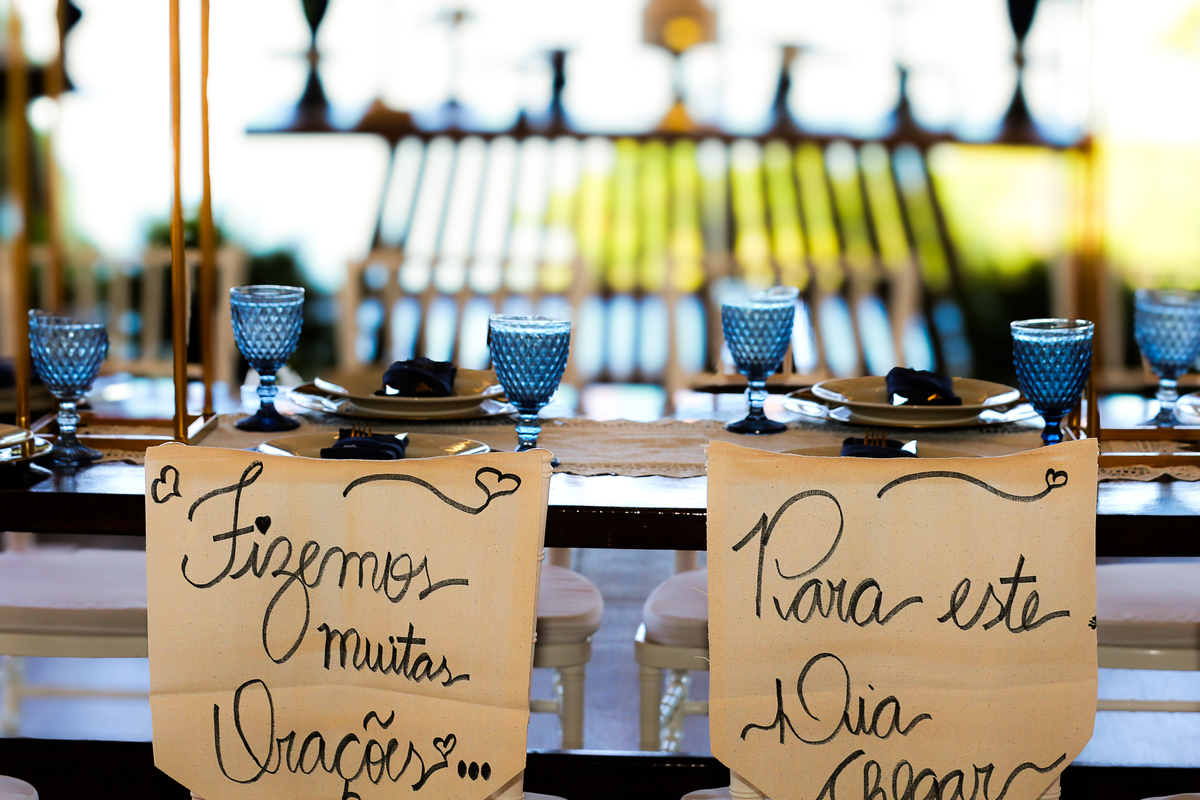 Fizemos
muitas
Orações...
Para este
Dia
Chegar